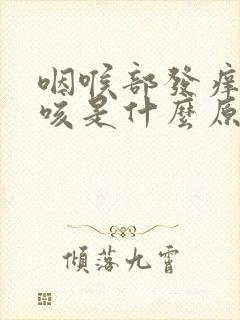 咽喉部發痒
咳是什麼原
傾落九霄